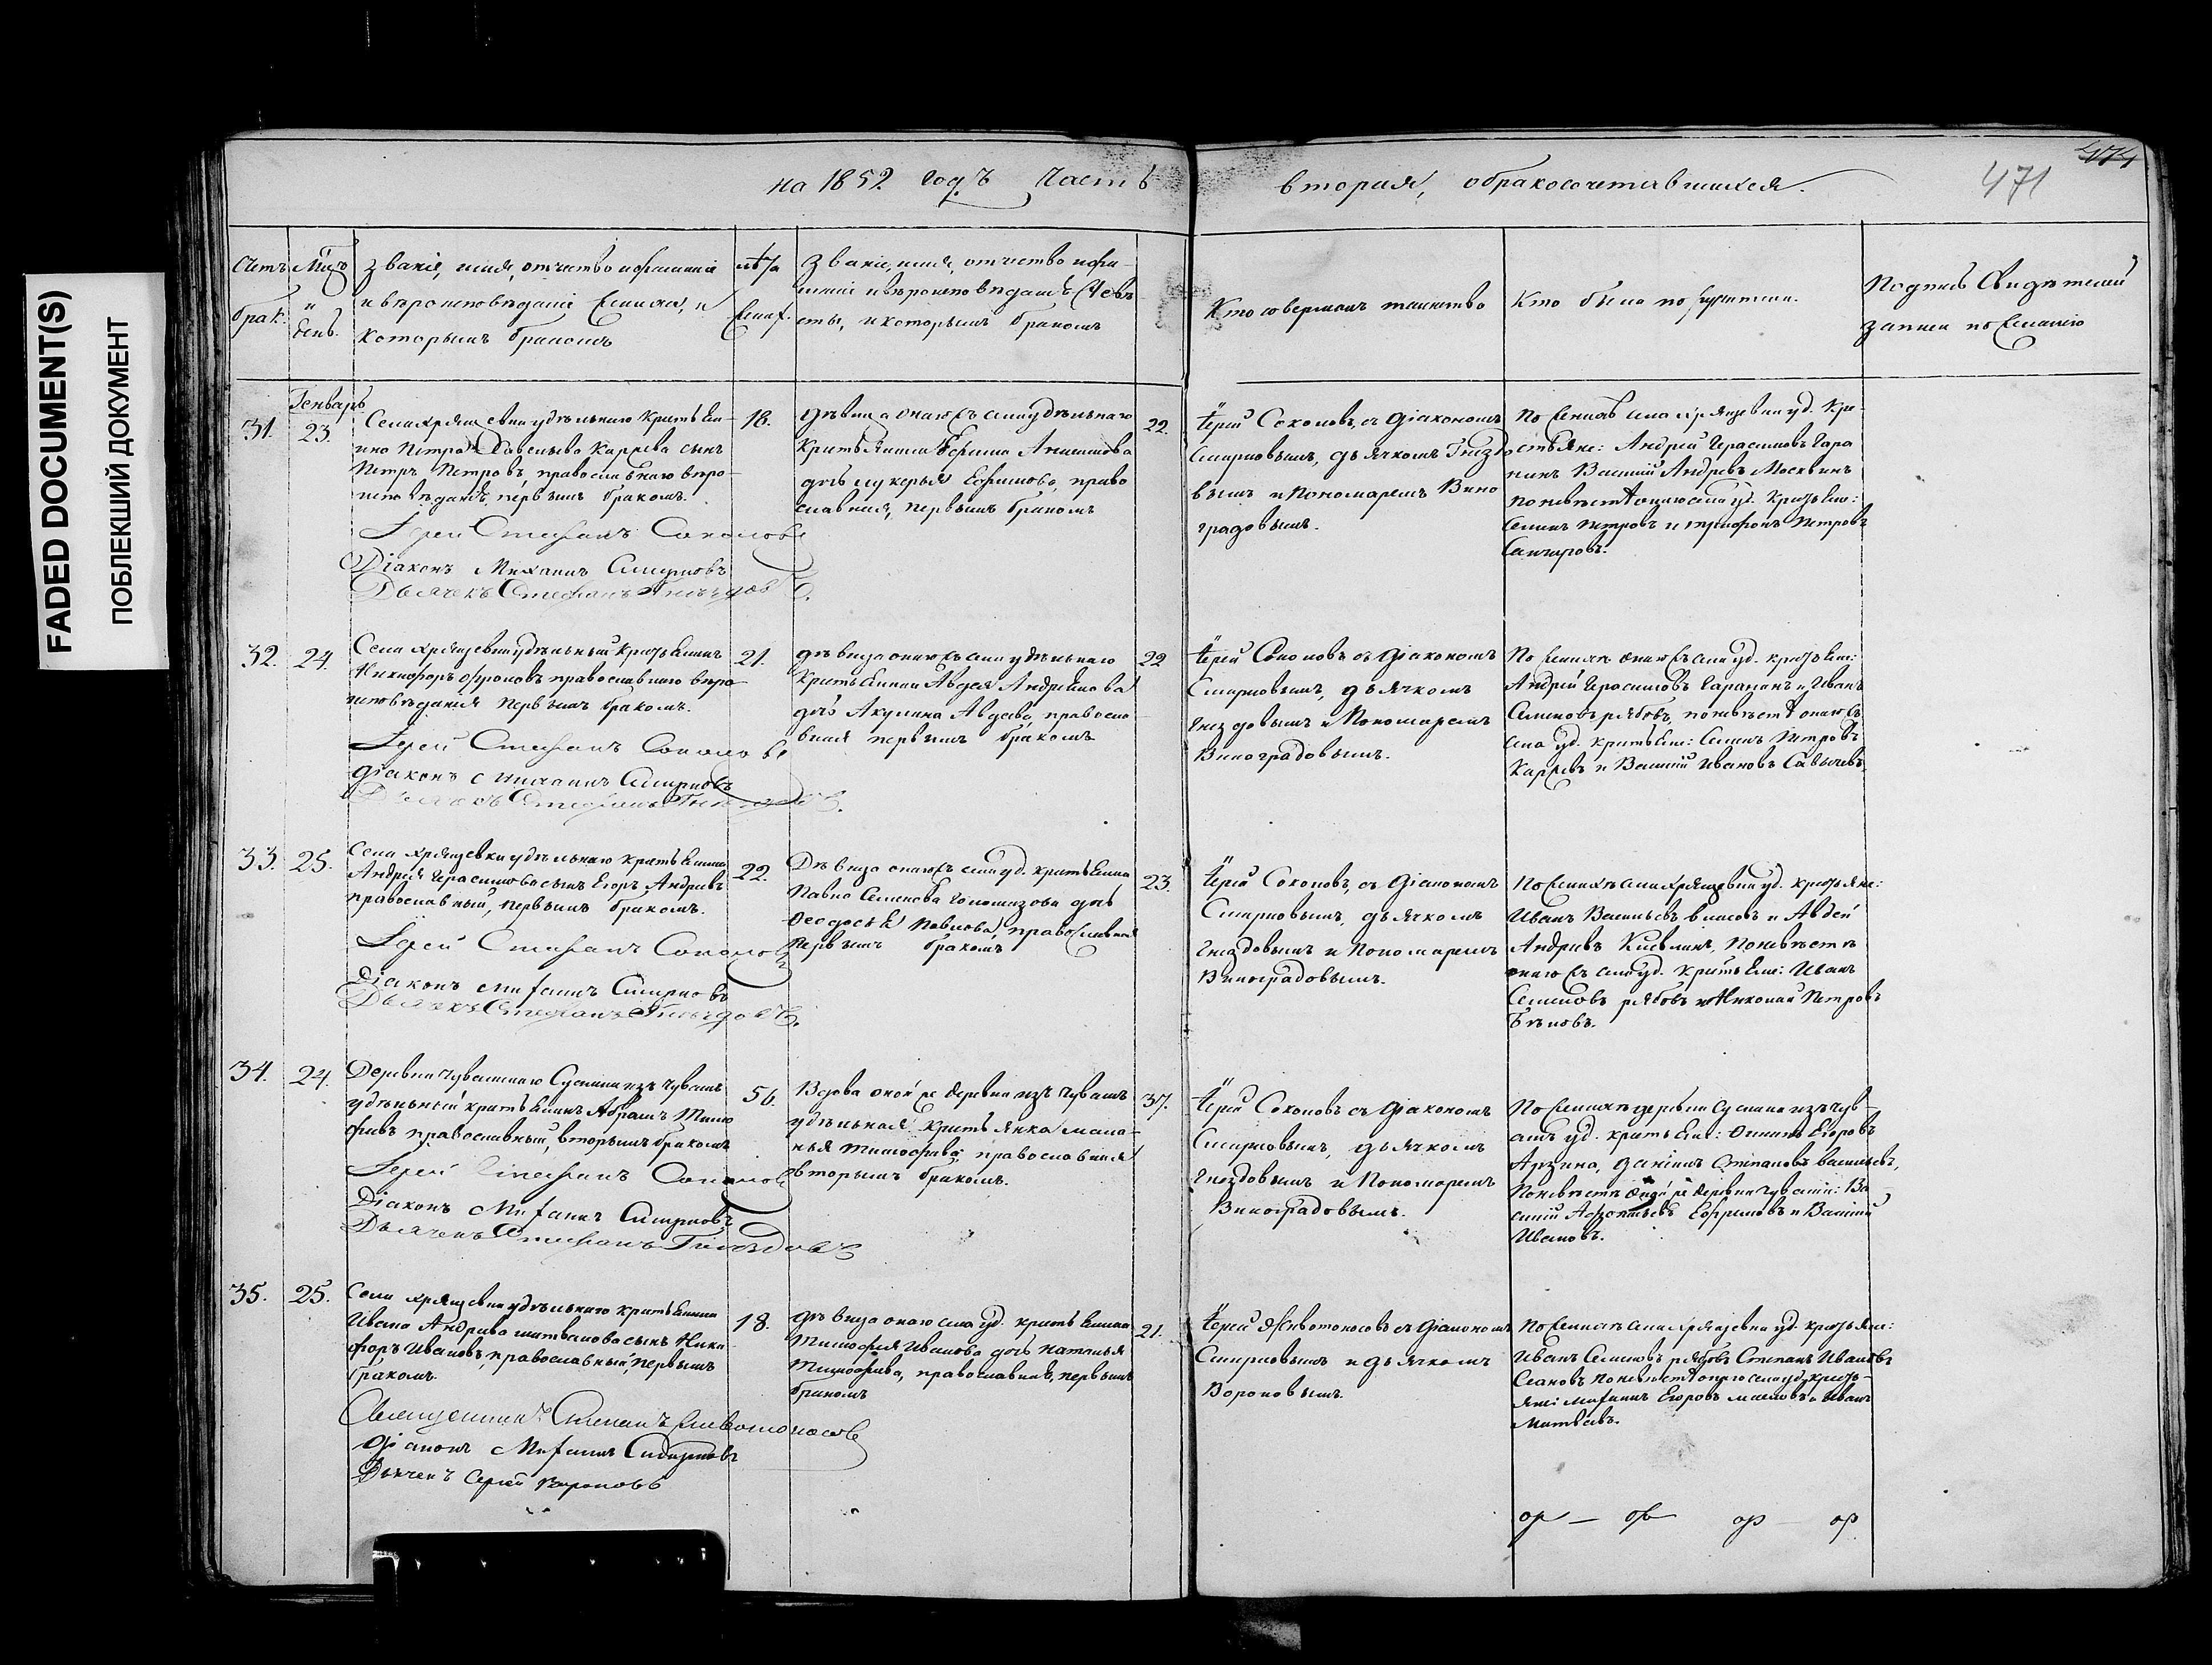 FADED DOCUMENT(S)
ПОБЛЕКШИЙ ДОКУМЕНТ
на 1852 годъ Часть вторая, о бракосочетавшихся.
471
474
Счетъ брак.
Мцъ и день.
званіе, имя, отчество и фамилія
и вѣроисповѣданіе жениха, и
которымъ бракомъ
лѣта жених.
званіе, имя, отчество и фами-
лія и вѣроисповѣданіе невѣ
сты, и которымъ бракомъ
Кто совершалъ таинство
Кто были поручители.
Подпись свидѣтелей
записи по желанію
Генварь
31. 23.
Села Хрящевки удѣльнаго крестьяни-
на Петра Савельева Карѣева сынъ
Петръ Петровъ, православнаго вѣро-
исповѣданія, первымъ бракомъ.
Іерей Стефанъ Соколовъ
Діаконъ Михаилъ Смирновъ
Дьячекъ Стефанъ Гнѣздовъ.
18.
дѣвица онаго села удѣльнаго
крестьянина Ефима
дочь Лукерья Ефимова, право
славная, первымъ бракомъ
22.
Іерей Соколовъ, съ діакономъ
Смирновымъ, дьячкомъ Гнездо
вымъ и Пономаремъ Вино
градовымъ.
По женихѣ села Хрящевки уд. кре-
стьяне: Андрей Герасимовъ Гара
нинъ Василій Андреевъ Москвинъ
по невѣстѣ онаго села уд. крестьяне:
Семенъ Петровъ и Трифонъ Петровъ
32. 24.
Села Хрящевки удѣльный крестьянинъ
Никифоръ православнаго вѣро-
исповѣданія первымъ бракомъ.
Іерей Стефанъ Соколовъ
Діаконъ Михаилъ Смирновъ
Дьячекъ Стефанъ Гнѣздовъ.
21.
дѣвица онаго села удѣльнаго
крестьянина Авдея Андреянова
дочь Акулина Авдеева, правосла
вная первымъ бракомъ
22
Іерей Соколовъ съ діакономъ
Смирновымъ, дьячкомъ
Гнездовымъ и Пономаремъ
Виноградовымъ.
По женихѣ онаго села уд. крестьяне:
Андрей Герасимовъ Гаранинъ и Иванъ
Семеновъ Рябовъ, по невѣстѣ онаго
села уд. крестьяне: Семенъ Петровъ
Карѣевъ и Василій Ивановъ
33. 25.
Села Хрящевки удѣльнаго крестьянина
Андрея Герасимова сынъ Егоръ Андреевъ
православный, первымъ бракомъ.
Іерей Стефанъ Соколовъ
Діаконъ Михаилъ Смирновъ
Дьячекъ Стефанъ Гнѣздовъ.
22.
Дѣвица онаго села уд. крестьянина
Павла Семенова дочь
Ѳеодосья Павлова, православная
первымъ бракомъ
23.
Іерей Соколовъ, съ діакономъ
Смирновымъ, дьячкомъ
Гнездовымъ и Пономаремъ
Виноградовымъ.
По женихѣ села Хрящевки уд. крестьяне:
Иванъ Васильевъ и Авдей
Андреевъ по невѣстѣ
онаго села уд. крестьяне: Иванъ
Семеновъ Рябовъ и Николай Петровъ
Бѣловъ.
34. 24.
Деревни Чувашскаго Сускана изъ чувашъ
удѣльный крестьянинъ Абрамъ Тимо
фѣевъ православный, вторымъ бракомъ
Іерей Стефанъ Соколовъ
Діаконъ Михаилъ Смирновъ
Дьячекъ Стефанъ Гнѣздовъ
56.
Вдова оной же деревни изъ чувашъ
удѣльная крестьянка Мала-
нья Тимофѣева, православная
вторымъ бракомъ.
37.
Іерей Соколовъ съ діакономъ
Смирновымъ, дьячкомъ
Гнездовымъ и Пономаремъ
Виноградовымъ.
По женихѣ деревни Сускана изъ чув-
ашъ уд. крестьяне: Егоровъ
Даніилъ Степановъ Васильевъ,
по невѣстѣ оной же деревни Ва
силій Ефремовъ и Василій
Ивановъ.
35. 25.
Села Хрящевки удѣльнаго крестьянина
Ивана Андреева сынъ Ники
форъ Ивановъ, православный, первымъ
бракомъ.
Священникъ Стефанъ Живоtоносовъ
Діаконъ Михаилъ Смирновъ
Дьячекъ Сергей Вороновъ
18.
дѣвица онаго села уд. крестьянина
Тимофея Иванова дочь Наталья
Тимофѣева, православная, первымъ
бракомъ
21.
Іерей Живоtоносовъ съ діакономъ
Смирновымъ и дьячкомъ
Вороновымъ.
По женихѣ села Хрящевки уд. крестьяне:
Иванъ Семеновъ Рябовъ Степанъ Ивановъ
по невѣстѣ онаго села уд. кресть-
яне: Михаилъ Егоровъ и Иванъ
Матвѣевъ.